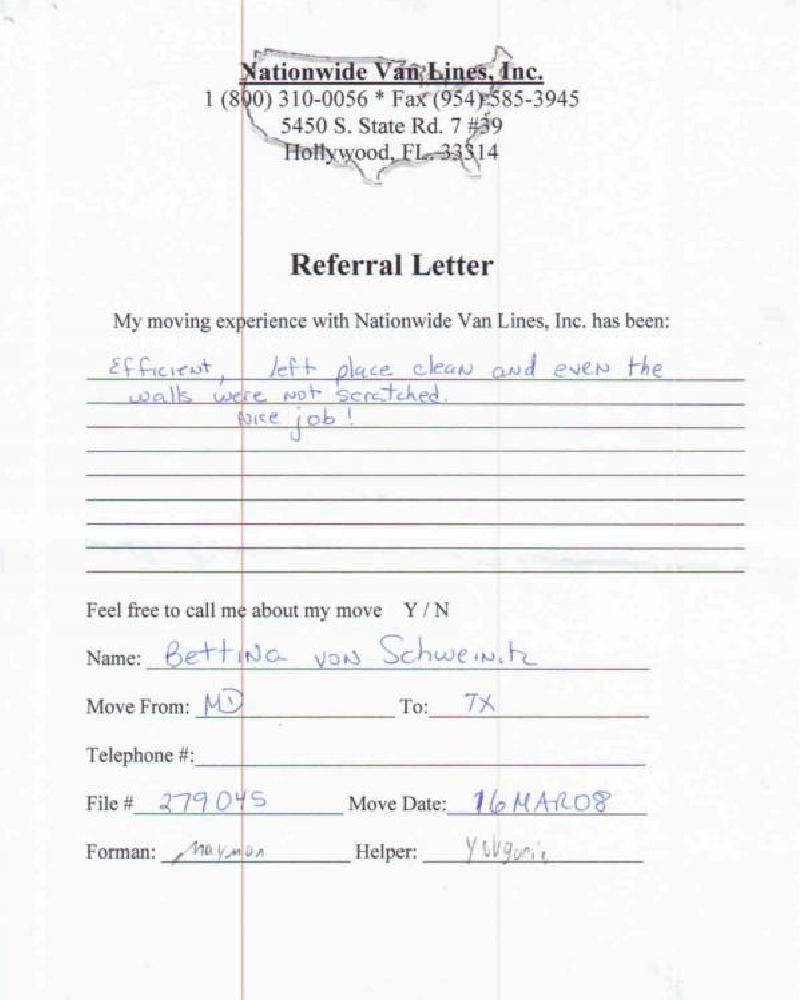 Nationwide Van Lines, Inc.
1 (800) 310-0056 * Fax (954) 585-3945
5450 S. State Rd. 7 #39
Hollywood, FL. 33314
Referral Letter
My moving experience with Nationwide Van Lines, Inc. has been:
Efficient, left place clean and even the
walls were not scratched.
Nice job!
Feel free to call me about my move Y / N
Name: Bettina von Schweinitz
Move From: MD To: TX
Telephone #:
File # 279045 Move Date: 16 MAR08
Forman: Maymon Helper: